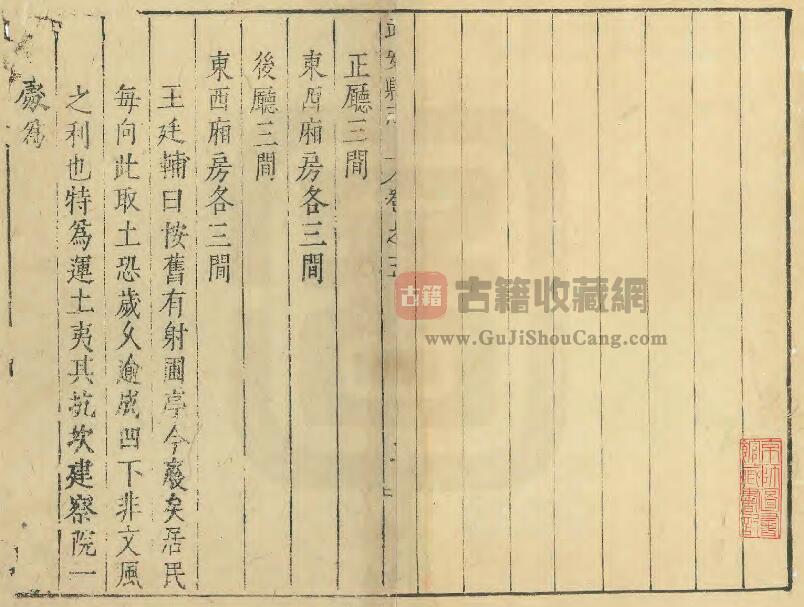 正廳三間
東西廂房各三間
後廳三間
東西廂房各三間
王廷輔曰按舊有射圃亭今廢矣居民
每向此取土恐歲久逾成凹下非文風
之利也特為運土夷其坑坎建察院一
廠為
古籍
古籍收藏網
www.GuJiShouCang.com